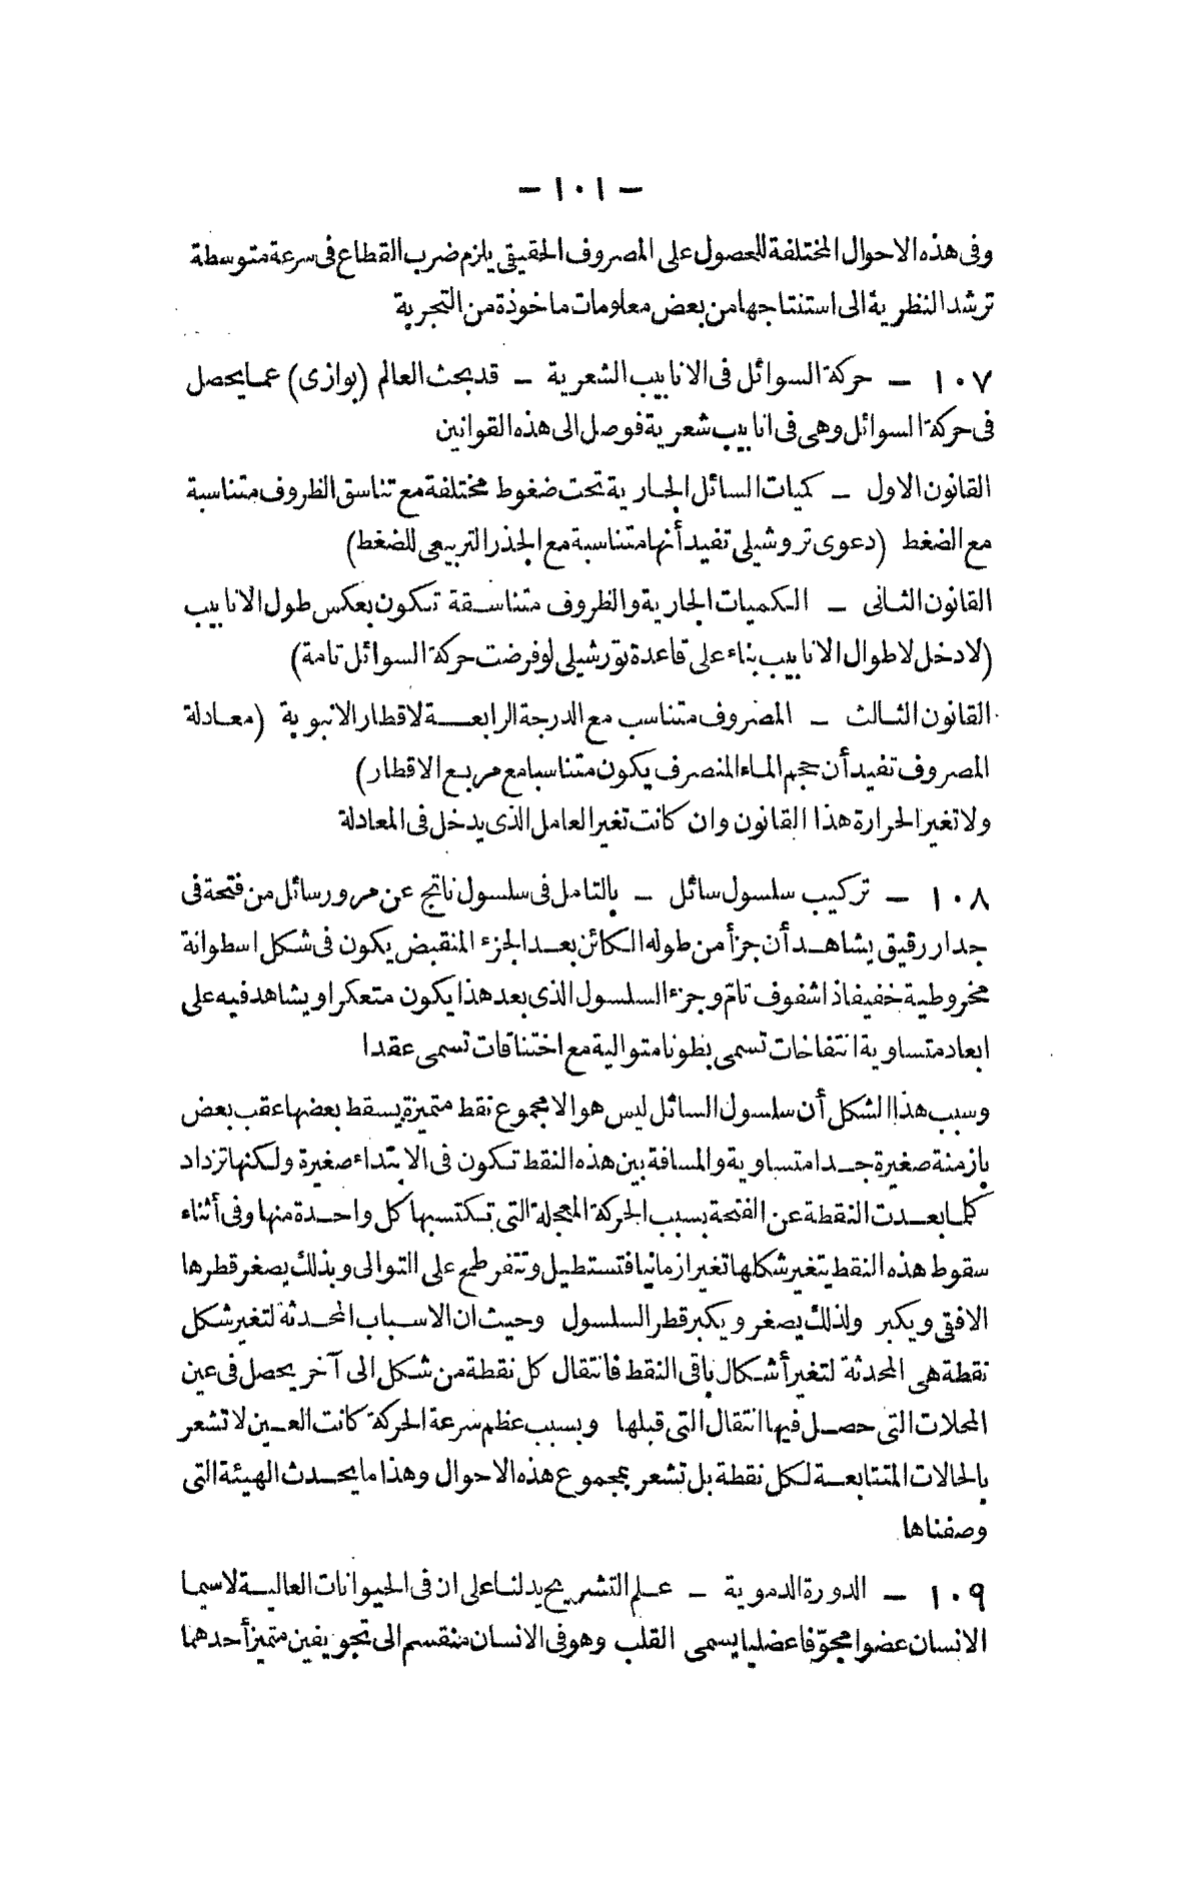 — ١٠١ —
وفى هذه الاحوال المختلفة للحصول على المصروف الحقيقى يلزم ضرب القطاع فى سرعة متوسطة
ترشد النظرية الى استنتاجها من بعض معلومات ماخوذة من التجربة
١٠٧ — حركة السوائل فى الانابيب الشعرية — قد بحث العالم (بوازى) عما يحصل
فى حركة السوائل وهى فى انابيب شعرية فوصل الى هذه القوانين
القانون الاول — كميات السائل الجارية تحت ضغوط مختلفة مع تناسق الظروف متناسبة
مع الضغط (دعوى تروشيلى تفيد أنها متناسبة مع الجذر التربيعى للضغط)
القانون الثانى — الكميات الجارية والظروف متناسقة تكون بعكس طول الانابيب
(لا دخل لاطوال الانابيب بناء على قاعدة تورشيلى لو فرضت حركة السوائل تامة)
القانون الثالث — المصروف متناسب مع الدرجة الرابعة لاقطار الانبوبة (معادلة
المصروف تفيد أن حجم الماء المنصرف يكون متناسبا مع مربع الاقطار)
ولا تغير الحرارة هذا القانون وان كانت تغير العامل الذى يدخل فى المعادلة
١٠٨ — تركيب سلسول سائل — بالتامل فى سلسول ناتج عن مرور سائل من فتحة فى
جدار رقيق يشاهد أن جزأ من طوله الكائن بعد الجزء المنقبض يكون فى شكل اسطوانة
مخروطية خفيفا ذا شفوف تام وجزء السلسول الذى بعد هذا يكون متعكرا ويشاهد فيه على
ابعاد متساوية انتفاخات تسمى بطونا متوالية مع اختناقات تسمى عقدا
وسبب هذا الشكل أن سلسول السائل ليس هو الا مجموع نقط متميزة يسقط بعضها عقب بعض
بازمنة صغيرة جدا متساوية والمسافة بين هذه النقط تكون فى الابتداء صغيرة ولكنها تزداد
كلما بعدت النقطة عن الفتحة بسبب الحركة المعجلة التى تكتسبها كل واحدة منها وفى أثناء
سقوط هذه النقط يتغير شكلها تغيرا زمانيا فتستطيل وتتفرطح على التوالى وبذلك يصغر قطرها
الافقى ويكبر ولذلك يصغر ويكبر قطر السلسول وحيث ان الاسباب المحدثة لتغير شكل
نقطة هى المحدثة لتغير أشكال باقى النقط فانتقال كل نقطة من شكل الى آخر يحصل فى عين
المحلات التى حصل فيها انتقال التى قبلها وبسبب عظم سرعة الحركة كانت العين لا تشعر
بالحالات المتتابعة لكل نقطة بل تشعر بمجموع هذه الاحوال وهذا ما يحدث الهيئة التى
وصفناها
١٠٩ — الدورة الدموية — علم التشريح يدلنا على ان فى الحيوانات العالية لاسيما
الانسان عضوا مجوّفا عضليا يسمى القلب وهو فى الانسان منقسم الى تجويفين متميز أحدهما